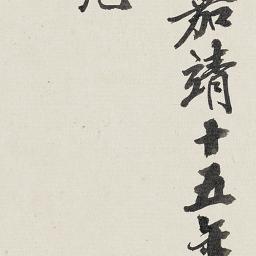 嘉靖十五年